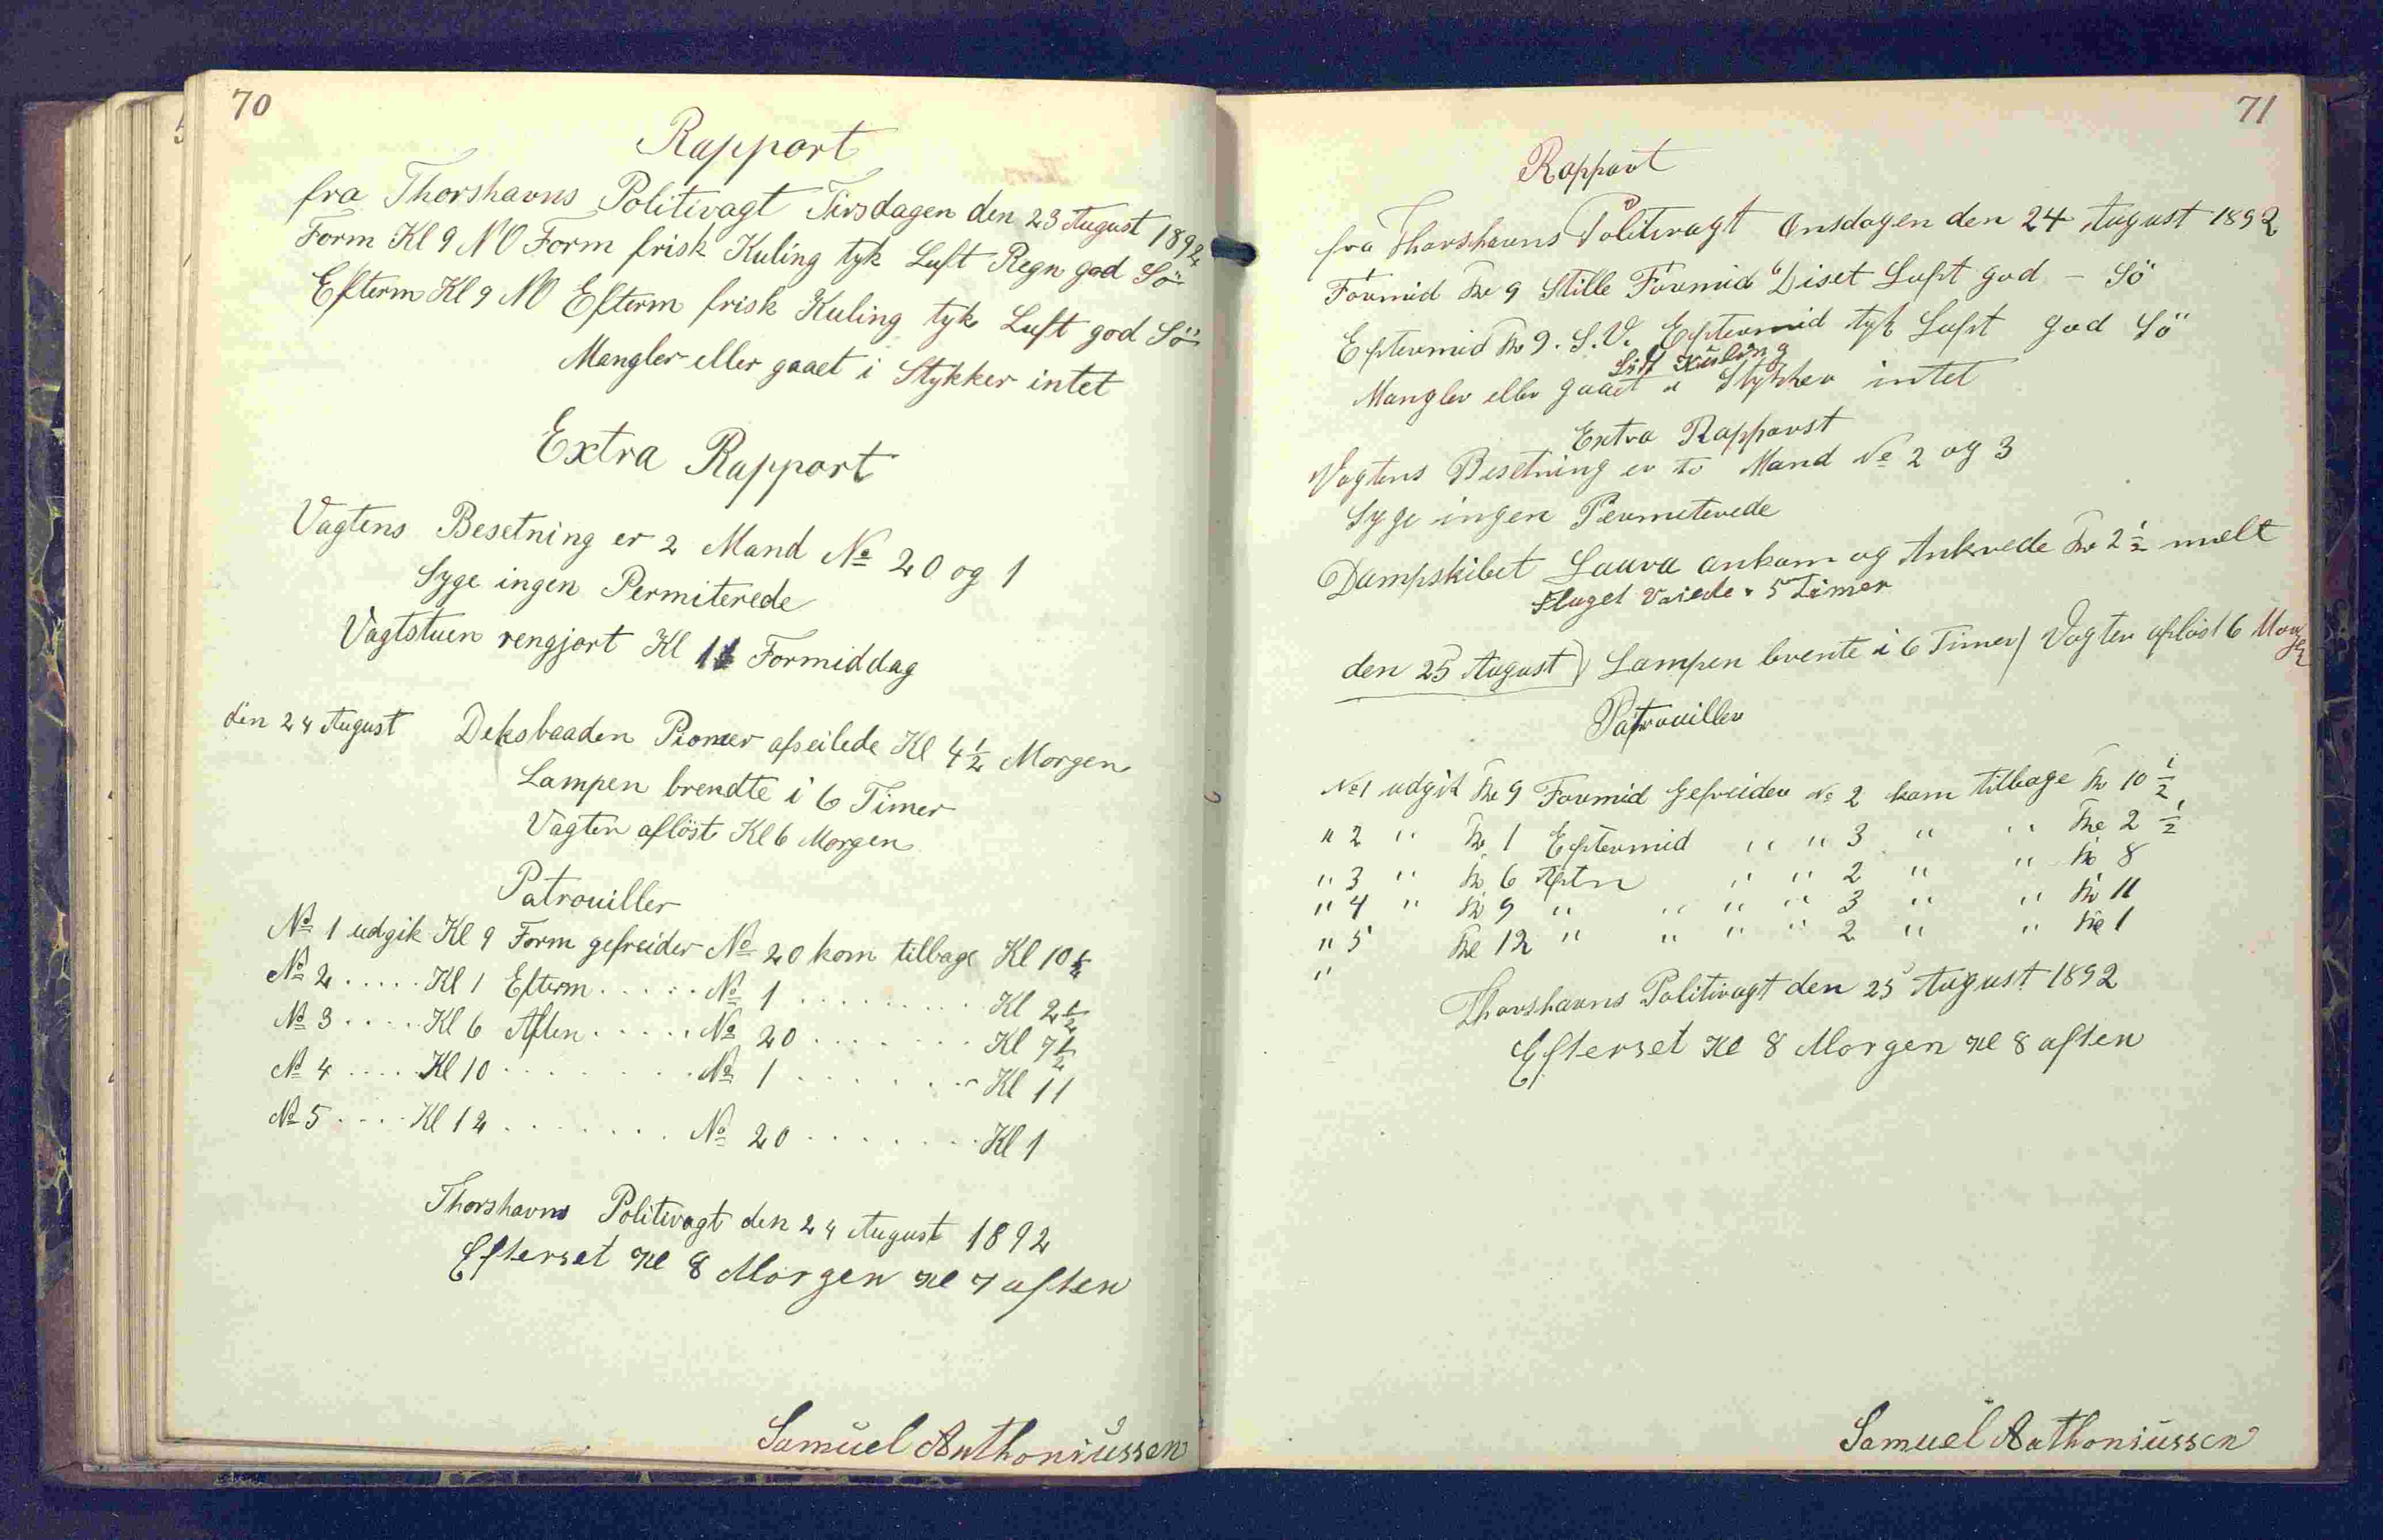 70
Rapport
fra Thorshavns Politivagt Tirsdagen den 23 August 1892
Form Kl 9 NO Form frisk Kuling tyk Luft Regn god Sö
Efterm Kl 9 NO Efterm frisk Kuling tyk Luft god Sö
Mangler eller gaaet i Stykker intet
Extra Rapport
Vagtens Besetning er 2 Mand No 20 og 1
Syge ingen Permiterede
Vagtstuen rengjort Kl 11 Formiddag
den 24 August Deksbaaden Pioner afseilede Kl 4 1/2 Morgen
Lampen brendte i 6 Timer
Vagten aflöst Kl 6 Morgen
Patrouiller
No 1 udgik Kl 9 Form gefreider No 20 kom tilbage Kl 10 1/2
No 2 ..... Kl 1 Efterm ..... No 1 ......... Kl 2 1/2
No 3 .... Kl 6 Aften ..... No 20 ....... Kl 7 1/2
No 4 .... Kl 10 ........ No 1 ....... Kl 11
No 5 .... Kl 12 ....... No 20 ....... Kl 1
Thorshavns Politivagt den 24 August 1892
Efterset Kl 8 Morgen Kl 7 aften
Samuel Anthoniussen
71
Rapport
fra Thorshavns Politivagt Onsdagen den 24 August 1892
Formid Kl 9 Stille Formid Diset Luft god - Sö
Eftermid Kl 9. S.V. Eftermid tyk Luft god Sö
Kuling
Mangler eller gaaet i Stykker intet
Extra Rapport
Vagtens Besetning er to Mand No 2 og 3
Syge ingen Permiterede
Dampskibet Laura ankom og Ankrede Kl 2 1/2
Flaget Vaiede 5 Timer
den 25 August) Lampen brente i 6 Timer/ Vagten aflöst 6 Morgen
Patrouiller
No 1 udgik Kl 9 Formid Gefreider No 2 kom tilbage Kl 10 1/2
" 2 " Kl 1 Eftermid " " 3 " " Kl 2 1/2
" 3 " Kl 6 Aftn " " 2 " " Kl 8
" 4 " Kl 9 " " " " 3 " " Kl 11
" 5 Kl 12 " " " " 2 " " Kl 1
"
Thorshavns Politivagt den 25 August 1892
Efterset Kl 8 Morgen Kl 8 aften
Samuel Anthoniussen